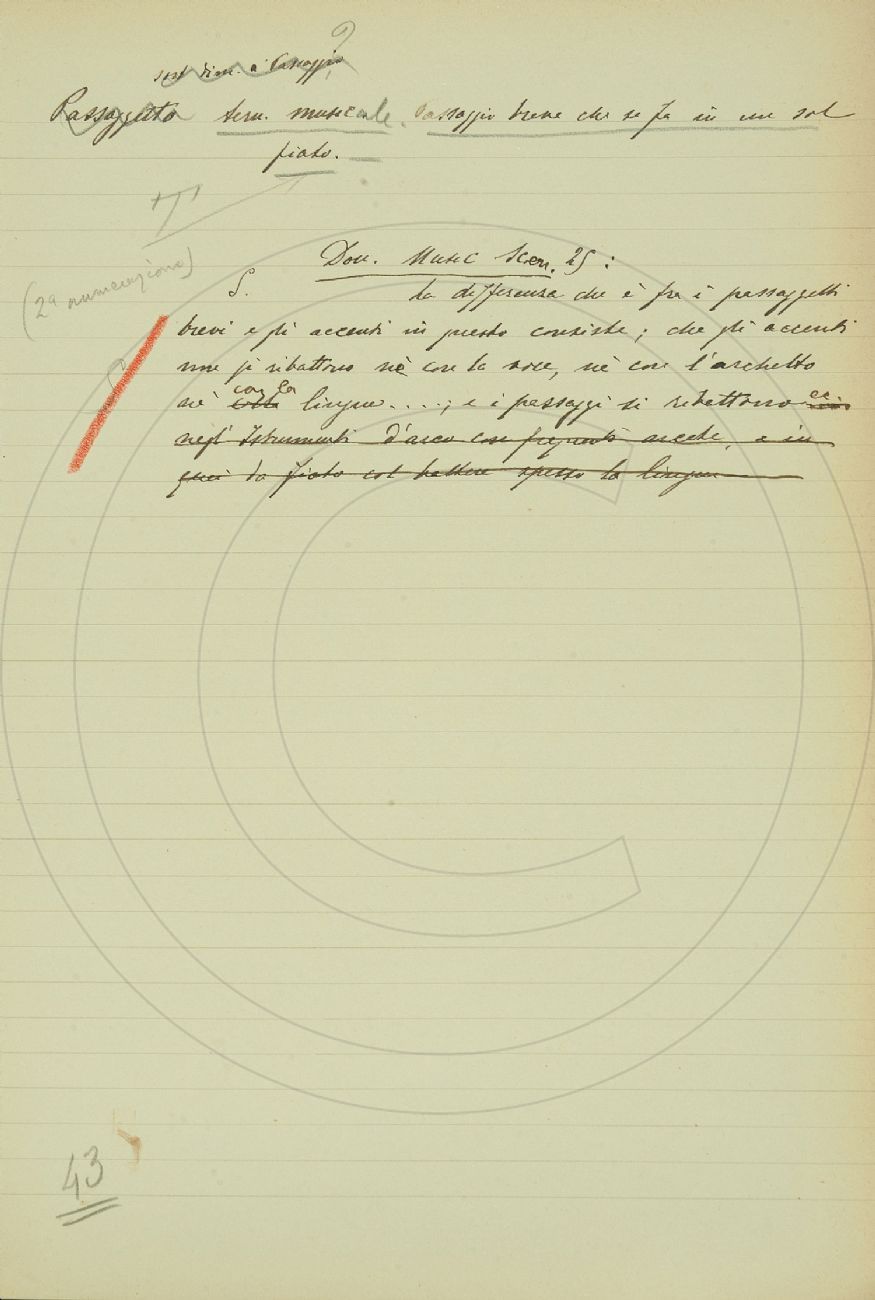 ?
sost. dim. a Passaggio
Passaggetto term. musicale. Passaggio breve che se fa in un sol
fiato.
T
Don. Music Scen. 25:
(2ª numerazione)
S. la differenza che è fra i passaggetti
brevi e gli accenti in questo consiste; che gli accenti
non si ribattono nè con la voce, nè con l'archetto
con la
nè colla lingua....; e i passaggi si ribattono ec.
negl' Istrumenti d'arco con frequenti arcate, e in
quei da fiato col battere spesso la lingua
43